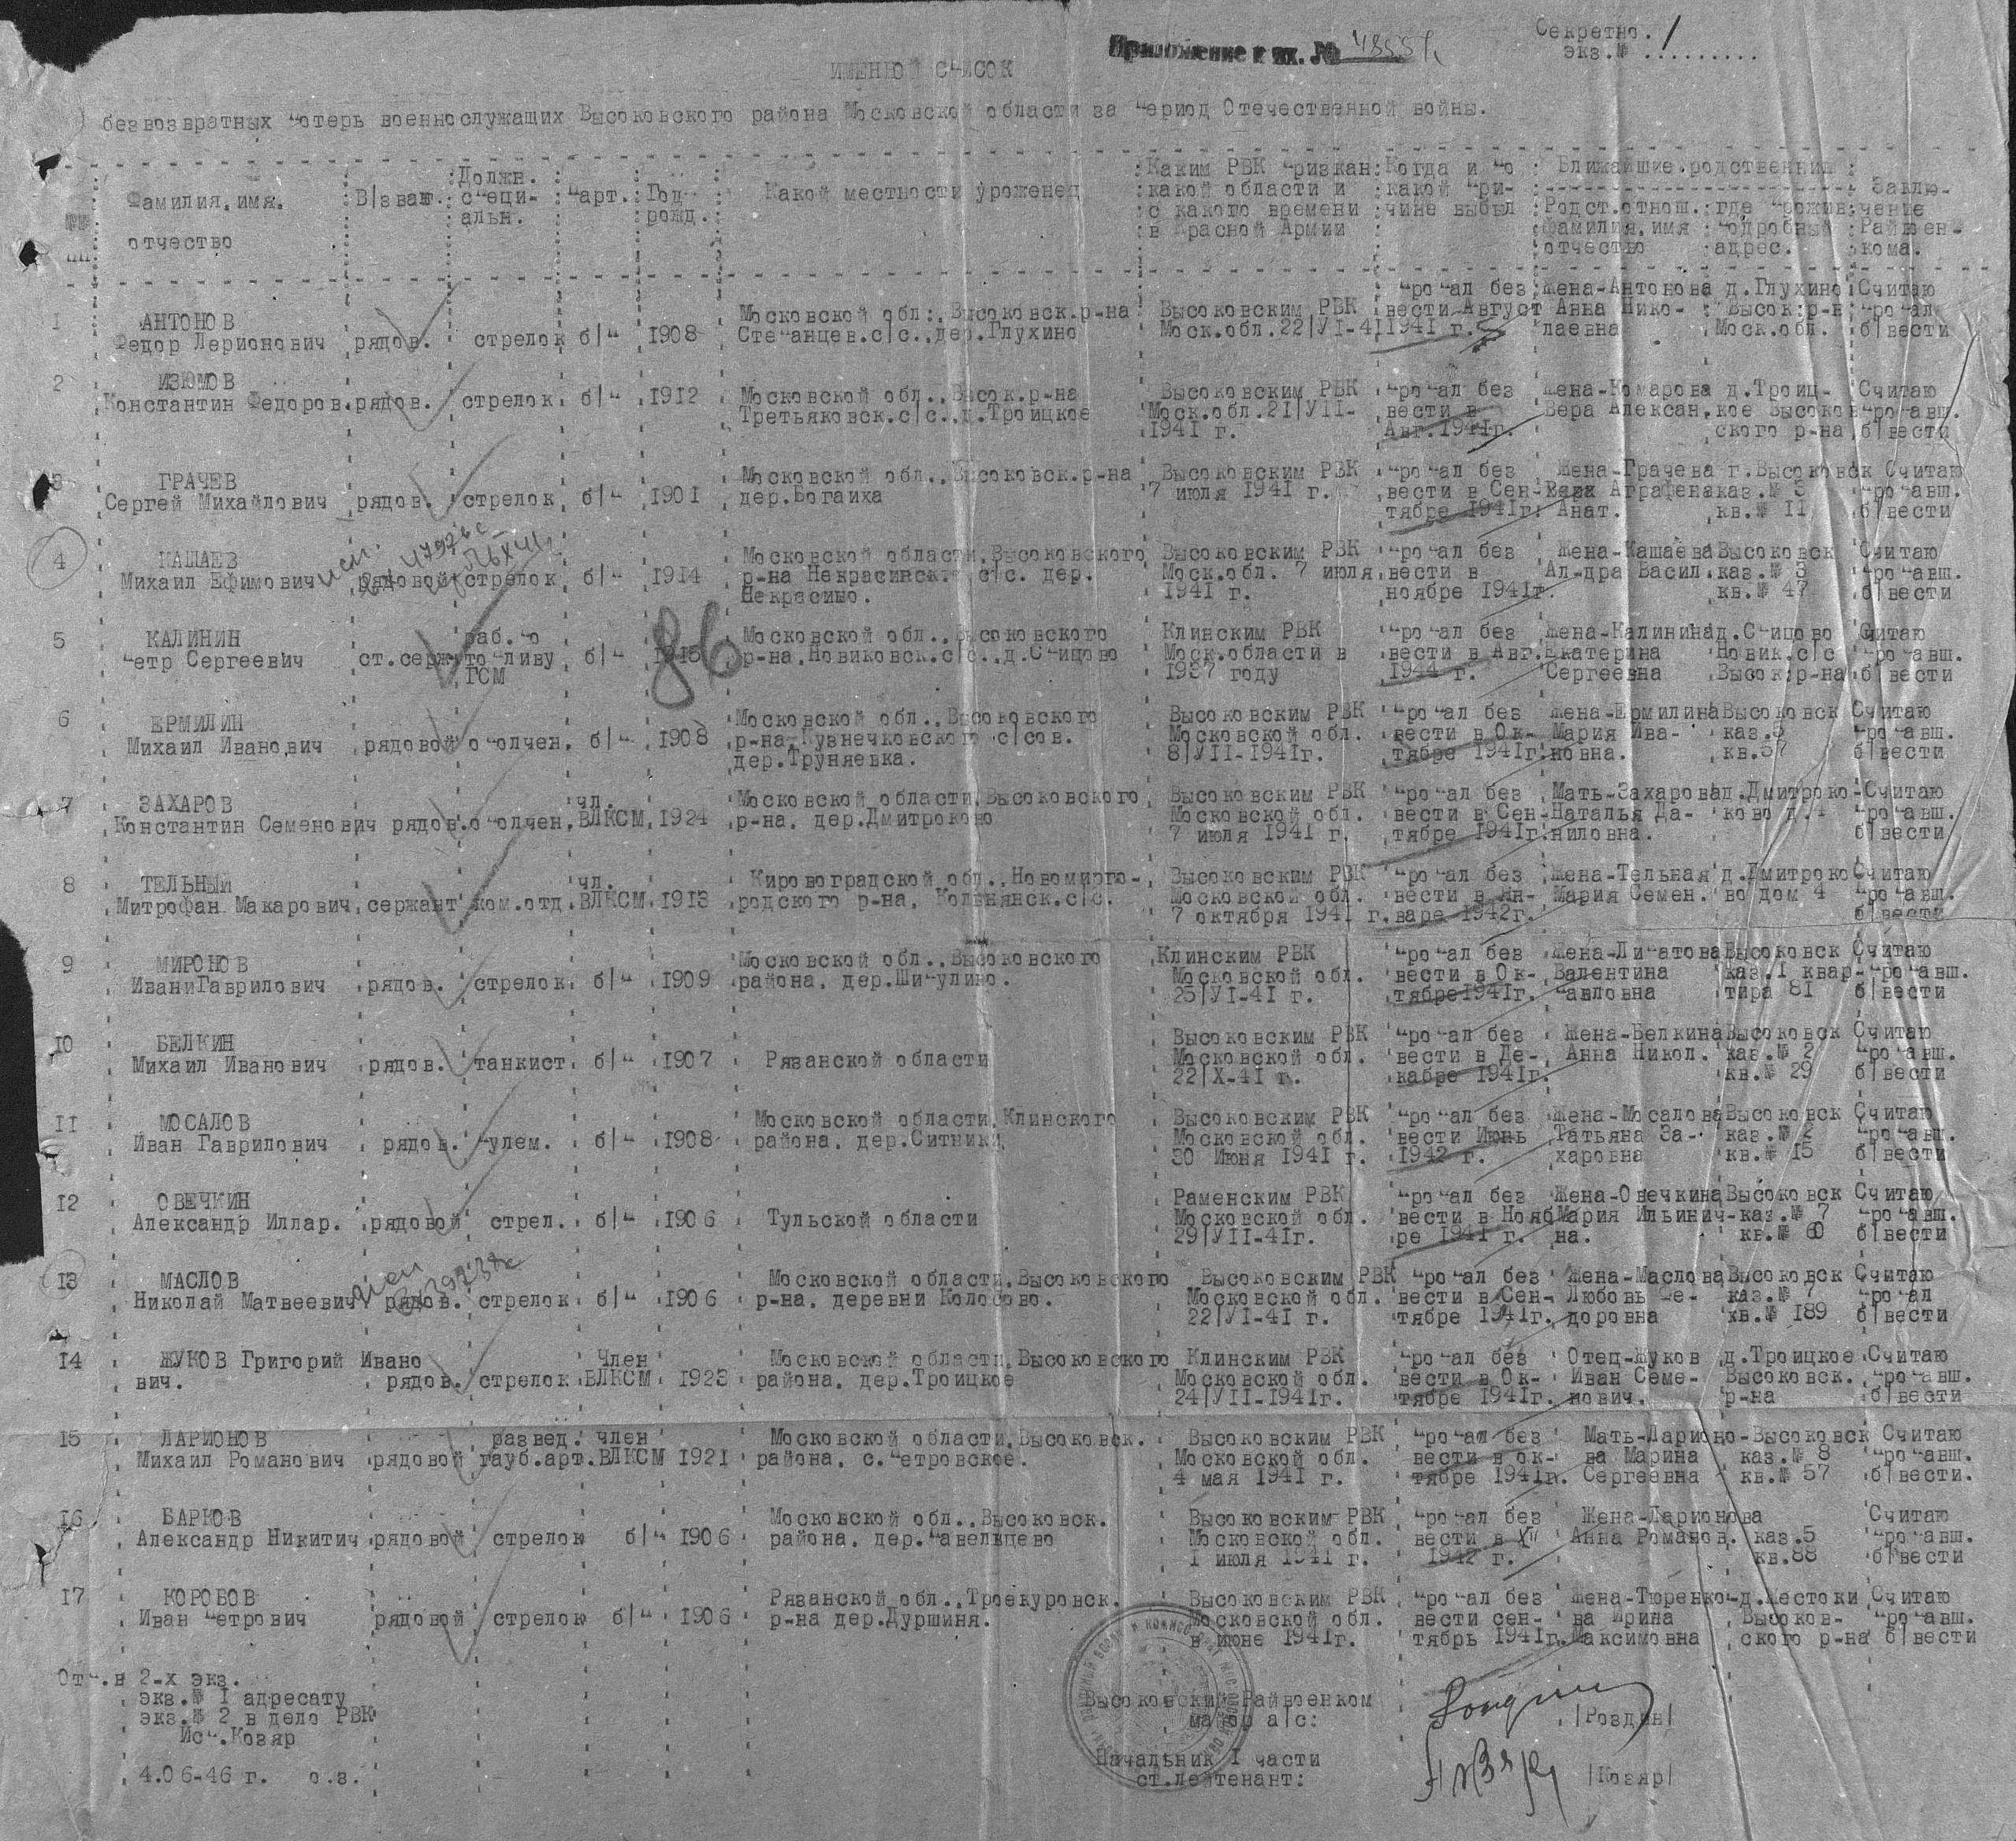 Секретно.
экз.№ 1
Приложение к вх. №
ИМЕННОЙ СПИСОК
безвозвратных потерь военнослужащих Высоковского района Московской области за период Отечественной войны.
№№ пп : Фамилия, имя, отчество : В/зван. : Должн. специ- альн. : Парт. : Год рожд. : Какой местности уроженец : Каким РВК призван какой области и с какого времени в Красной Армии : Когда и по какой при- чине выбыл : Ближайшие родственники : Родст.отнош. фамилия, имя отчество : где прожив. подробный адрес. : Заклю- чение Райвоен- кома.
1 АНТОНОВ Федор Лерионович рядов. стрелок б/п 1908 Московской обл., Высоковск.р-на Степанцев.с/с., дер.Глухино Высоковским РВК Моск.обл.22/VI-41 пропал без вести Август 1941 г. Жена-Антонова Анна Нико- лаевна д.Глухино Высок.р-н Моск.обл. Считаю пропал б/вести
2 ИЗЮМОВ Константин Федоров. рядов. стрелок б/п 1912 Московской обл., Высок.р-на Третьяковск.с/с., д.Троицкое Высоковским РВК Моск.обл.21/VII- 1941 г. пропал без вести в Авг.1941г. Жена-Комарова Вера Алексан. д.Троиц- кое Высоков ского р-на Считаю пропавш. б/вести
3 ГРАЧЕВ Сергей Михайлович рядов. стрелок б/п 1901 Московской обл., Высоковск.р-на дер.Богаиха Высоковским РВК 7 июля 1941 г. пропал без вести в Сен- тябре 1941г. Жена-Грачева Аграфена Анат. г.Высоковск каз.№ 3 кв.№ 11 Считаю пропавш. б/вести
4 КАШАЕВ Михаил Ефимович рядовой стрелок б/п 1914 Московской области, Высоковского р-на Некрасинск. с/с. дер. Некрасино. Высоковским РВК Моск.обл. 7 июля 1941 г. пропал без вести в ноябре 1941г. Жена-Кашаева Ал-дра Васил. Высоковск каз.№ 3 кв.№ 47 Считаю пропавш. б/вести
5 КАЛИНИН Петр Сергеевич ст.серж. раб.по топливу ГСМ б/п 86 Московской обл., Высоковского р-на, Новиковск.с/с., д.Спицово Клинским РВК Моск.области в 1937 году пропал без вести в Авг. 1944 г. Жена-Калинина Екатерина Сергеевна д.Спицово Новик.с/с Высок.р-на Считаю пропавш. б/вести
6 ЕРМИЛИН Михаил Иванович рядовой ополчен. б/п 1908 Московской обл., Высоковского р-на Кузнечковского с/сов. дер.Труняевка. Высоковским РВК Московской обл. 8/VII-1941г. пропал без вести в Ок- тябре 1941г. Жена-Ермилина Мария Ива- новна. Высоковск каз.3 кв.37 Считаю пропавш. б/вести
7 ЗАХАРОВ Константин Семенович рядов. ополчен. чл. ВЛКСМ 1924 Московской области, Высоковского р-на, дер.Дмитроково Высоковским РВК Московской обл. 7 июля 1941 г. пропал без вести в Сен- тябре 1941г. Мать-Захарова Наталья Да- ниловна. д.Дмитроко- ково д.4 Считаю пропавш. б/вести
8 ТЕЛЬНЫЙ Митрофан Макарович сержант ком.отд. чл. ВЛКСМ 1913 Кировоградской обл., Новомирго- родского р-на, Кольнянск.с/с. Высоковским РВК Московской обл. 7 октября 1941 г. пропал без вести в Ян- варе 1942г. Жена-Тельная Мария Семен. д.Дмитроко во дом 4 Считаю пропавш. б/вести
9 МИРОНОВ Иван Гаврилович рядов. стрелок б/п 1909 Московской обл., Высоковского района, дер.Шипулино. Клинским РВК Московской обл. 25/VI-41 г. пропал без вести в Ок- тябре 1941г. Жена-Липатова Валентина Павловна Высоковск каз.1 квар- тира 81 Считаю пропавш. б/вести
10 БЕЛКИН Михаил Иванович рядов. танкист б/п 1907 Рязанской области Высоковским РВК Московской обл. 22/X-41 г. пропал без вести в Де- кабре 1941г. Жена-Белкина Анна Никол. Высоковск каз.№ 2 кв.№ 29 Считаю пропавш. б/вести
11 МОСАЛОВ Иван Гаврилович рядов. пулем. б/п 1908 Московской области, Клинского района, дер.Ситники Высоковским РВК Московской обл. 30 Июня 1941 г. пропал без вести Июнь 1942 г. Жена-Мосалова Татьяна За- харовна Высоковск каз.№ 2 кв.№ 15 Считаю пропавш. б/вести
12 ОВЕЧКИН Александр Иллар. рядовой стрел. б/п 1906 Тульской области Раменским РВК Московской обл. 29/VII-41г. пропал без вести в Нояб ре 1941 г. Жена-Овечкина Мария Ильинич- на. Высоковск каз.№ 7 кв.№ 60 Считаю пропавш. б/вести
13 МАСЛОВ Николай Матвеевич рядов. стрелок б/п 1906 Московской области, Высоковского р-на, деревни Колосово. Высоковским РВК Московской обл. 22/VI-41 г. пропал без вести в Сен- тябре 1941г. Жена-Маслова Любовь Фе- доровна Высоковск каз.№ 7 кв.№ 189 Считаю пропал б/вести
14 ЖУКОВ Григорий Ивано вич. рядов. стрелок Член ВЛКСМ 1923 Московской области, Высоковского района, дер.Троицкое Клинским РВК Московской обл. 24/VII-1941г. пропал без вести в Ок- тябре 1941г. Отец-Жуков Иван Семе- нович. д.Троицкое Высоковск. р-на Считаю пропавш. б/вести
15 ЛАРИОНОВ Михаил Романович рядовой развед. гауб.арт. член ВЛКСМ 1921 Московской области, Высоковск. района, с.Петровское. Высоковским РВК Московской обл. 4 мая 1941 г. пропал без вести в ок- тябре 1941г. Мать-Ларионо- ва Марина Сергеевна Высоковск каз.№ 8 кв.№ 57 Считаю пропавш. б/вести.
16 БАРКОВ Александр Никитич рядовой стрелок б/п 1906 Московской обл., Высоковск. района, дер.Павельцево Высоковским РВК Московской обл. 1 июля 1941 г. пропал без вести в XII 1942 г. Жена-Ларионова Анна Романов. каз.5 кв.88 Считаю пропавш. б/вести
17 КОРОБОВ Иван Петрович рядовой стрелок б/п 1906 Рязанской обл., Троекуровск. р-на дер.Дуршиня. Высоковским РВК Московской обл. в июне 1941г. пропал без вести сен- тябрь 1941г. Жена-Тюренко- ва Ирина Максимовна д.Жестоки Высоков- ского р-на Считаю пропавш. б/вести
Отп.в 2-х экз.
экз.№ 1 адресату
экз.№ 2 в дело РВК
Исп.Козяр
4.06-46 г. о.з.
Высоковский Райвоенком
майор а/с: /Роздин/
Начальник 1 части
ст.лейтенант: /Козяр/